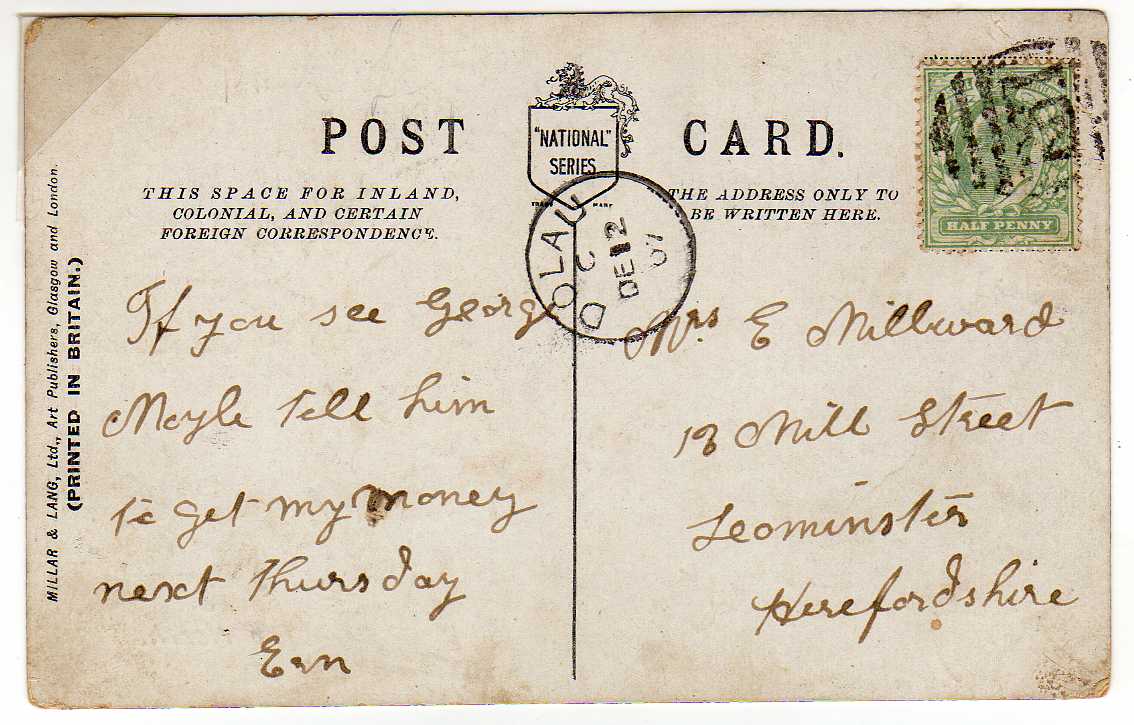 POST CARD.
"NATIONAL"
SERIES
TRADE MARK
THIS SPACE FOR INLAND,
COLONIAL, AND CERTAIN
FOREIGN CORRESPONDENCE.
THE ADDRESS ONLY TO
BE WRITTEN HERE.
HALF PENNY
DOLAU
C
DE 12
07
MILLAR & LANG, Ltd., Art Publishers, Glasgow and London.
(PRINTED IN BRITAIN.)
If you see George
Moyle tell him
to get my money
next Thursday
Ern
Mrs E Millward
18 Mill Street
Leominster
Herefordshire